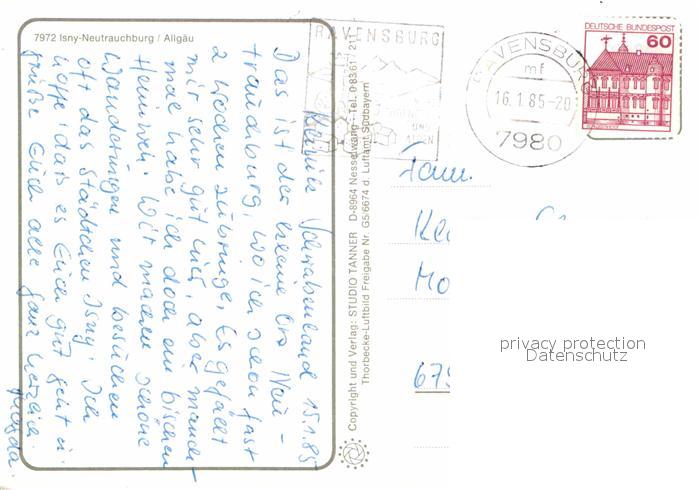 7972 Isny-Neutrauchburg / Allgäu
Schwabenland 15.1.85
Das ist der kleine Ort Neu-
trauchburg, wo ich schon fast
2 Wochen zubringe, Es gefällt
mir sehr gut hier, aber manch-
mal habe ich doch ein bischen
Heimweh. Wir machen schöne
Wanderungen und besuchen
oft das Städtchen Isny. Ich
hoffe, dass es Euch gut geht u.
grüße Euch alle ganz herzlich.
Copyright und Verlag: STUDIO TANNER D-8964 Nesselwang - Tel. 0 83 61 / 211
Thorbecke-Luftbild Freigabe Nr. G5/6674 d. Luftamt Südbayern
RAVENSBURG
UND
RAVENSBURG
mf
16.1.85-20
7980
DEUTSCHE BUNDESPOST
60
Fam.
Kl
Mo
679
privacy protection
Datenschutz